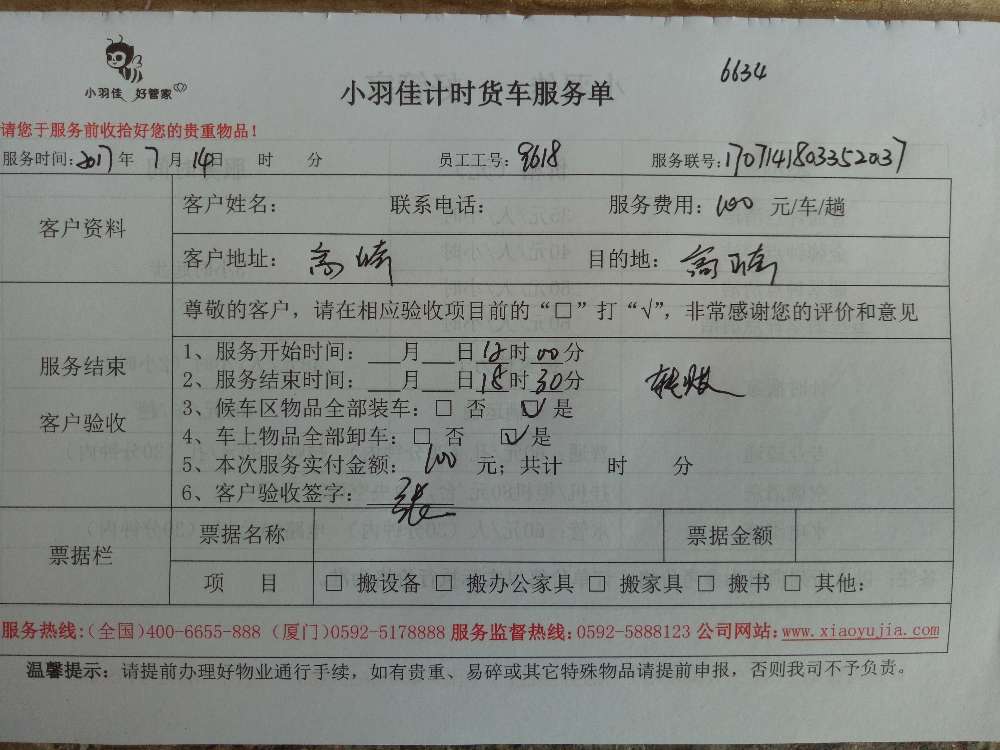 小羽佳 好管家
小羽佳计时货车服务单
6634
请您于服务前收拾好您的贵重物品！
服务时间：2017年 7 月 14日 时 分 员工工号：9618 服务联号：1707141803352037
客户资料
客户姓名： 联系电话： 服务费用：100 元/车/趟
客户地址：高崎 目的地：高崎
服务结束
客户验收
尊敬的客户，请在相应验收项目前的“□”打“√”，非常感谢您的评价和意见
1、服务开始时间：___月___日18时00分
2、服务结束时间：___月___日18时30分
3、候车区物品全部装车：□ 否 ☑ 是
4、车上物品全部卸车：□ 否 ☑ 是
5、本次服务实付金额：100 元；共计 时 分
6、客户验收签字：张
票据栏
票据名称 票据金额
项 目 □ 搬设备 □ 搬办公家具 □ 搬家具 □ 搬书 □ 其他：
服务热线:(全国)400-6655-888 (厦门)0592-5178888 服务监督热线:0592-5888123 公司网站:www.xiaoyujia.com
温馨提示：请提前办理好物业通行手续，如有贵重、易碎或其它特殊物品请提前申报，否则我司不予负责。